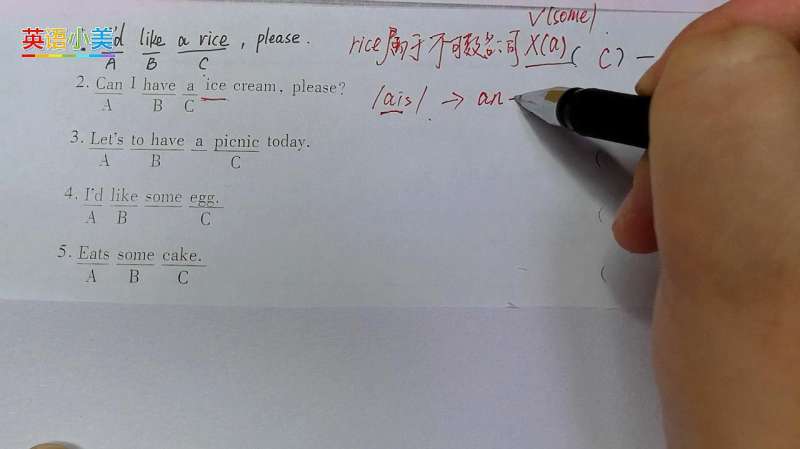 英语小美
'd like a rice, please.
A B C
V(some)
rice属于不可数名词 X(a) ( C ) —
2. Can I have a ice cream, please?
A B C
/ais/ → an
3. Let's to have a picnic today.
A B C
4. I'd like some egg.
A B C
5. Eats some cake.
A B C